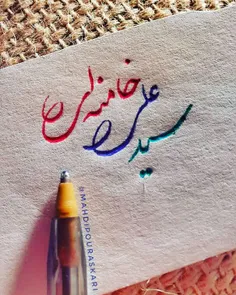 سید علی خامنه‌ای
@MAHDIPOURASKARI